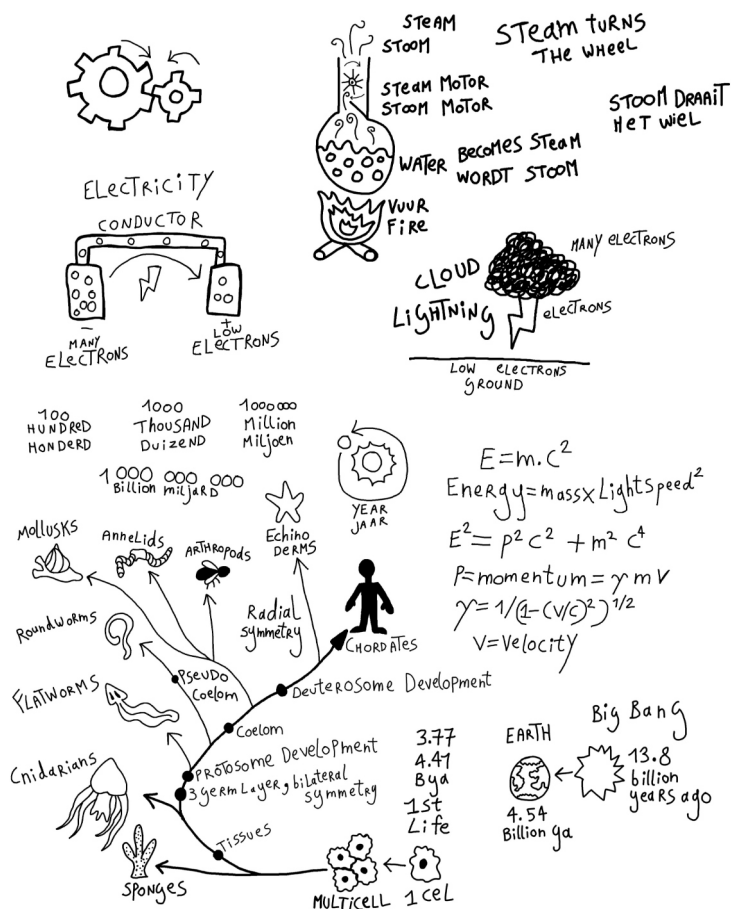 STEAM
STOOM
STEAM TURNS
THE WHEEL
STEAM MOTOR
STOOM MOTOR
STOOM DRAAIT
HET WIEL
WATER BECOMES STEAM
WORDT STOOM
VUUR
FIRE
ELECTRICITY
CONDUCTOR
−
MANY
ELECTRONS
+
LOW
ELECTRONS
MANY ELECTRONS
CLOUD
LIGHTNING
ELECTRONS
LOW ELECTRONS
GROUND
100
HUNDRED
HONDERD
1000
THOUSAND
DUIZEND
1000000
Million
Miljoen
1 000 000 000
Billion miljARD
YEAR
JAAR
E=m.c²
Energy=massxLightspeed²
E²=p²c²+m²c⁴
P=momentum=γmv
γ=1/(1-(v/c)²)^1/2
V=Velocity
Mollusks
Annelids
ARTHROPODS
Echino
DERMS
Radial
symmetry
CHORDATES
Roundworms
Pseudo
Coelom
Deuterosome Development
FLATWORMS
Coelom
Protosome Development
3 germ Layer, bilateral
symmetry
Cnidarians
Tissues
SPONGES
MULTICELL
1 CEL
3.77
4.41
Bya
1st
Life
EARTH
4.54
Billion ya
Big Bang
13.8
billion
years ago